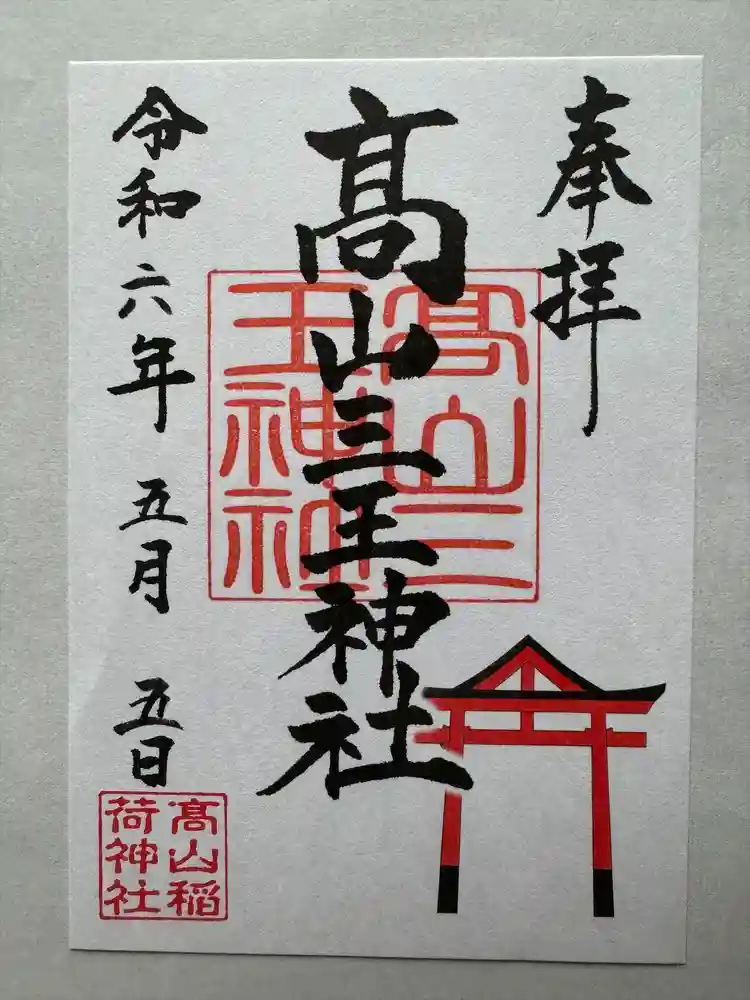 奉拝
髙山三王神社
令和六年 五月 五日
髙山三
王神社
髙山稲
荷神社